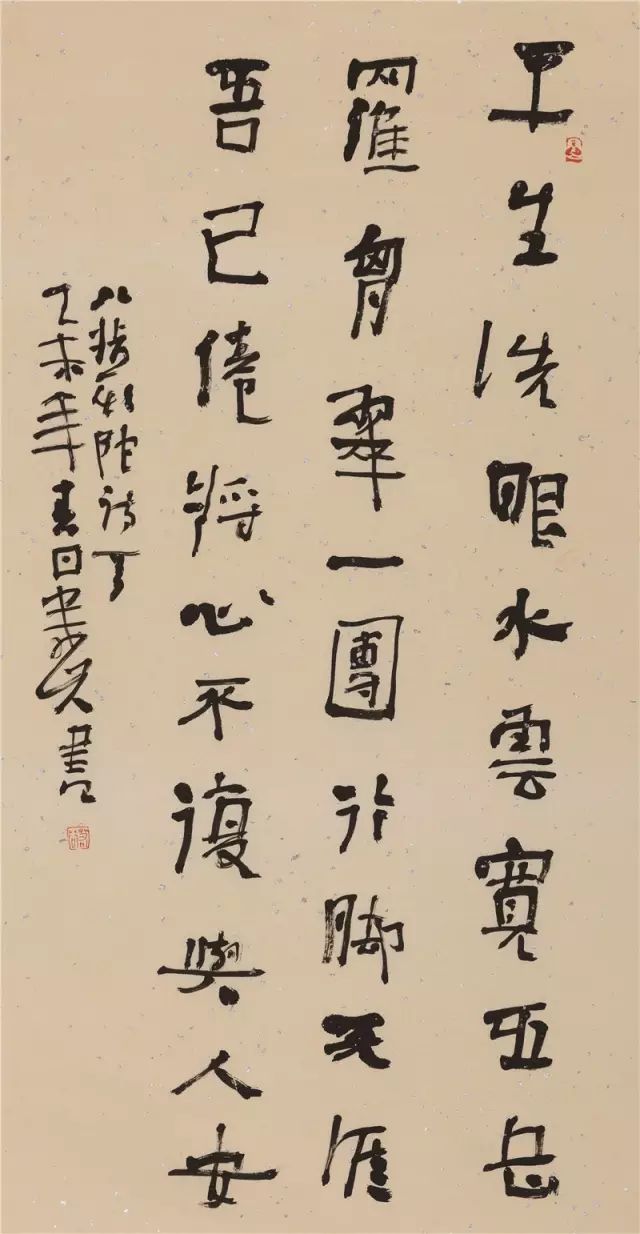 平生洗眼水雲寬五岳
羅胷翠一團行脚天涯
吾已倦將心不復與人安
八指頭陀詩
乙未年春日書